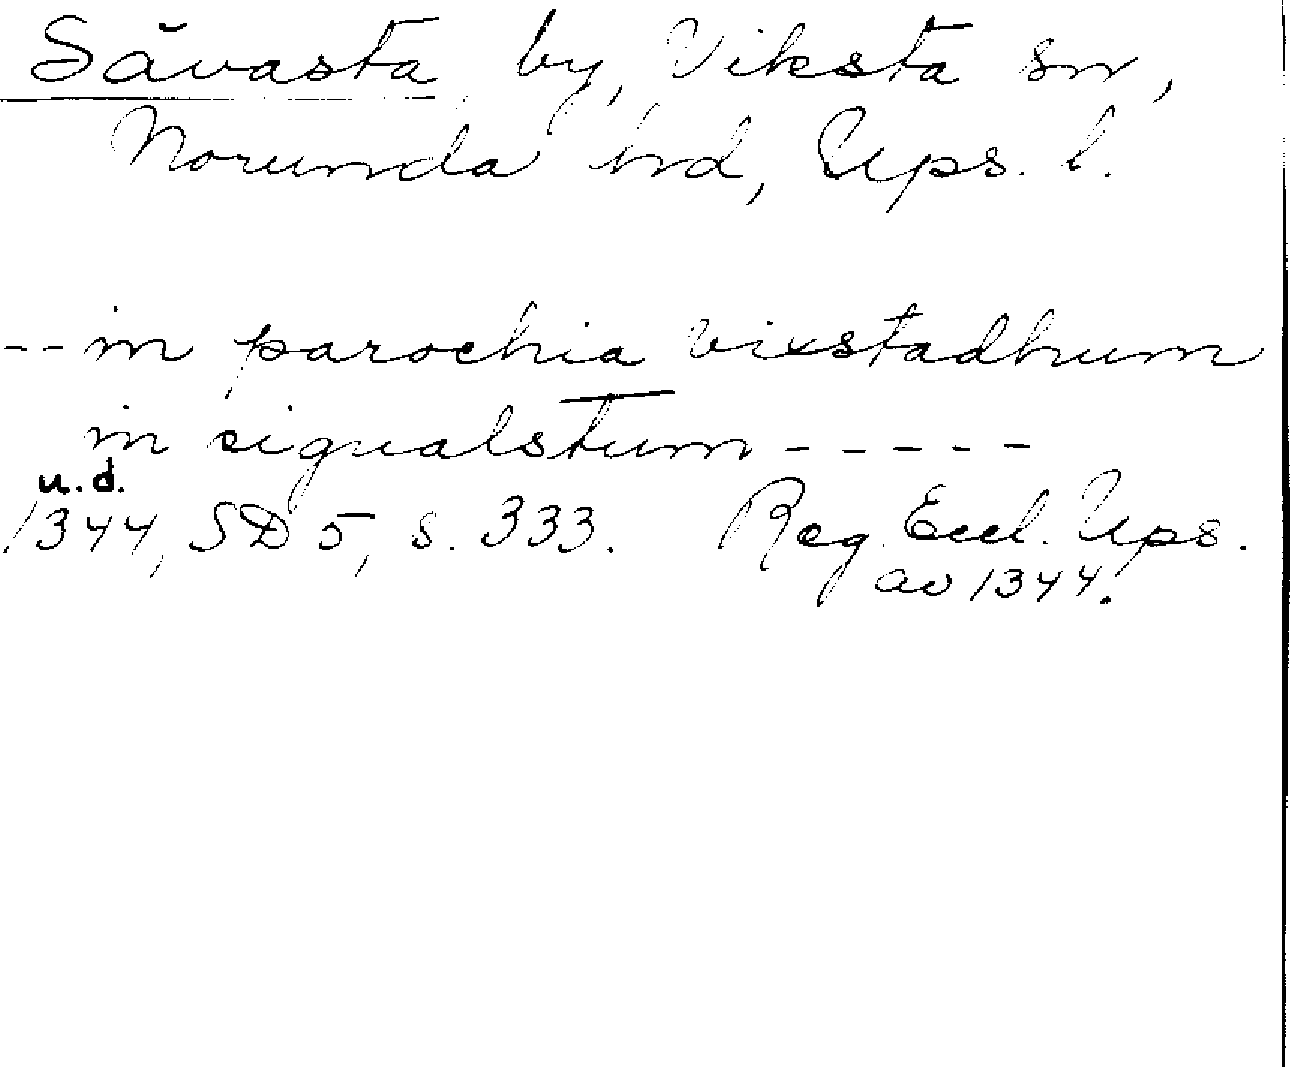 Såvasta by, Viksta sn,
Norunda hd, Ups. l.
-- in parochia vixstadhum
in sigualstum -----
u.d.
1344, SD 5, s. 333. Reg. Eccl. Ups.
av 1344.